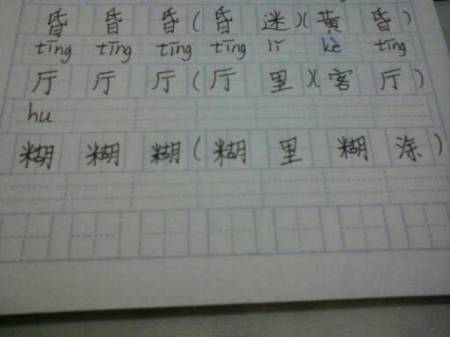 昏 昏 昏(昏 迷)(黄 昏)
tīng tīng tīng tīng lǐ kè tīng
厅 厅 厅(厅 里)(客 厅)
hu
糊 糊 糊(糊 里 糊 涂)